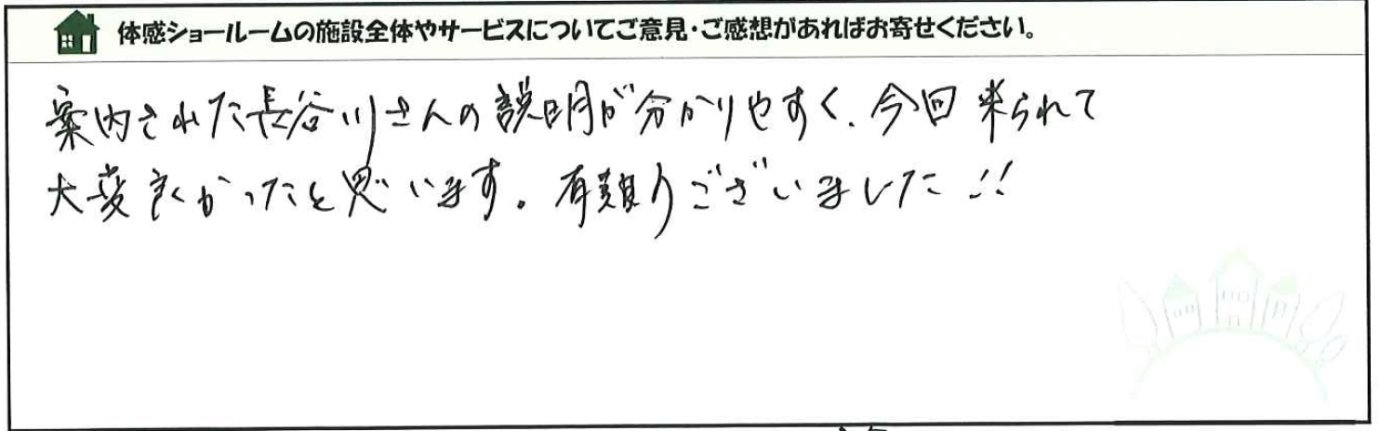 体感ショールームの施設全体やサービスについてご意見・ご感想があればお寄せください。
案内された長谷川さんの説明が分かりやすく、今回来られて
大変良かったと思います。有難うございました!!